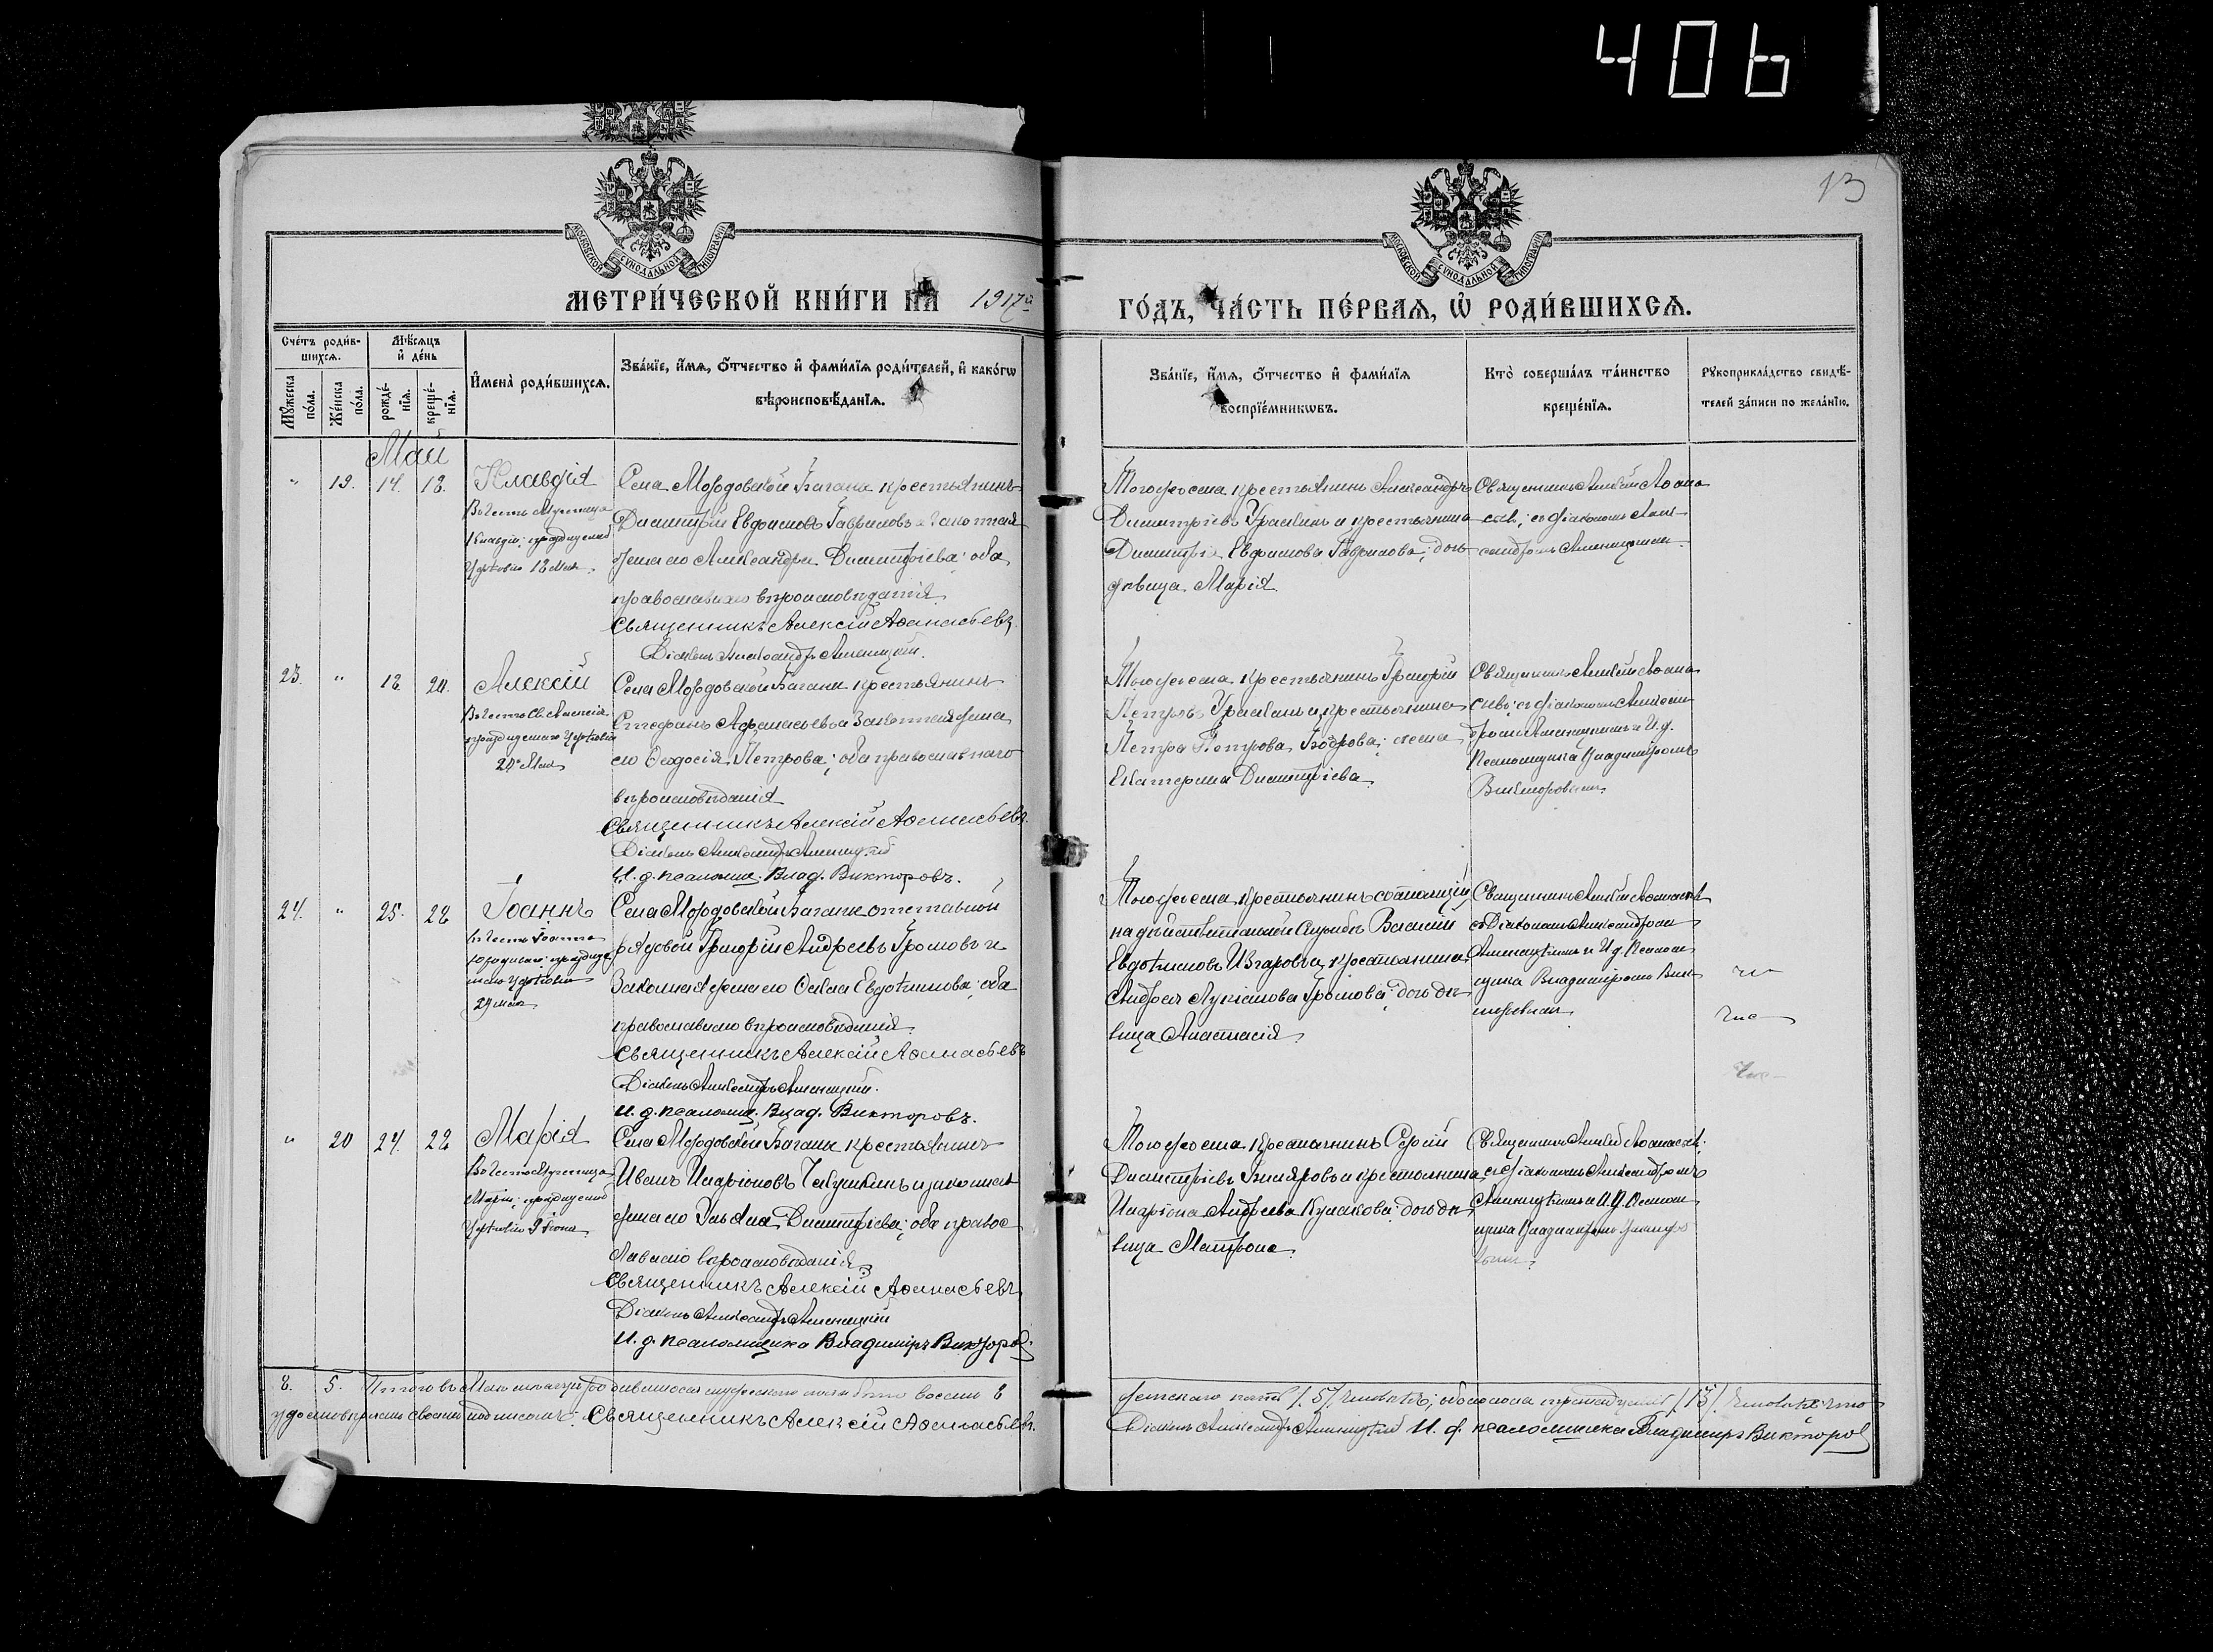 406
13
МОСКОВСКОЙ СѴНОДАЛЬНОЙ ТИПОГРАФІИ
МОСКОВСКОЙ СѴНОДАЛЬНОЙ ТИПОГРАФІИ
МЕТРИ́ЧЕСКОЙ КНИ́ГИ НА 1917й
ГО́ДЪ, ЧА́СТЬ ПЕ́РВАѦ, Ѽ РОДИ́ВШИХСѦ.
Сче́тъ роди́в-
шихсѧ.
Мѣ́сѧцъ
и҆ де́нь
Мꙋ́жеска
по́ла.
Же́нска
по́ла.
рожде́-
нїѧ.
креще́-
нїѧ.
И҆мена̀ роди́вшихсѧ.
Зва́нїе, и҆́мѧ, ѻ҆́тчество и҆ фами́лїѧ роди́телей, и҆ како́гѡ
вѣроисповѣ́данїѧ.
Зва́нїе, и҆́мѧ, ѻ҆́тчество и҆ фами́лїѧ
воспрїе́мникѡвъ.
Кто̀ соверша́лъ та́инство
креще́нїѧ.
Рꙋкоприкла́дство свидѣ́-
телей за́писи по жела́нїю.
Май
" 19. 14. 18. Клавдія
Въ честь Мученицы
Клавдіи; празднуемой
Церковію 18 Мая.
Села Мордовской Баганы крестьянинъ
Димитрій Евдокимовъ Гавриловъ и законная
жена его Александра Димитріева; оба
православнаго вѣроисповѣданія
Священникъ Алексій Аѳанасьевъ.
Діаконъ Александръ
Того же села крестьянинъ Александръ
Димитріевъ и крестьянина
Димитрія Евдокимова Гаврилова; дочь
дѣвица Марія.
Священникъ Алексій Аѳана
сьевъ; съ діакономъ Алек
сандромъ
23. " 18. 20. Алексій
Въ честь Св. Алексія
празднуемаго Церковію
20 Мая
Села Мордовской Баганы крестьянинъ
Стефанъ Аѳанасьевъ и законная жена
его Ѳеодосія Петрова; оба православнаго
вѣроисповѣданія
Священникъ Алексій Аѳанасьевъ.
Діаконъ Александръ
И. д. псаломщ. Влад. Викторовъ.
Того же села крестьянинъ Григорій
Петровъ и крестьянина
Петра Петрова Бодрова; жена
Екатерина Димитріева.
Священникъ Алексій Аѳана
сьевъ; съ діакономъ Алексан
дромъ и И. д.
Псаломщика Владиміромъ
Викторовымъ.
24. " 25. 28 Іоаннъ
въ честь Іоанна
юродиваго; праздну
емаго Церковію
29 мая
Села Мордовской Баганы отставной
рядовой Григорій Андреевъ Громовъ и
Законная жена его Ѳекла Евдокимова; оба
православнаго вѣроисповѣданія
Священникъ Алексій Аѳанасьевъ
Діаконъ Александръ
И. д. псаломщ. Влад. Викторовъ.
Того же села крестьянинъ состоящій
на дѣйствительной службѣ Василій
Евдокимовъ и крестьянина
Андрея Лукіанова Громова; дочь дѣ
вица Анастасія.
Священникъ Алексій Аѳанасьевъ
съ Діакономъ Александромъ
и И. д. Псалом
щика Владиміромъ Вик
торовымъ
" 20 24. 28 Марія
Въ честь Мученицы
Маріи; празднуемой
Церковію 9 Іюня
Села Мордовской Баганы крестьянинъ
Иванъ Иларіоновъ Чебушкинъ и законная
жена его Димитріева; оба право
славнаго вѣроисповѣданія
Священникъ Алексій Аѳанасьевъ
Діаконъ Александръ
И. д. псаломщика Владиміръ Викторовъ.
Того же села крестьянинъ Сергій
Димитріевъ и крестьянина
Иларіона Андреева Кулакова; дочь дѣ
вица Матрона.
Священникъ Алексій Аѳанасьев.
съ діакономъ Александромъ
и И. д. Псалом
щика Владиміромъ
8. 5. Итого въ Маѣ мѣсяцѣ родившихся мужескаго пола было восемь 8
женскаго пять /5/ человѣкъ; обоего пола тринадцать /13/ человѣкъ что
удостовѣряемъ своимъ подписомъ: Священникъ Алексій Аѳанасьевъ.
Діаконъ Александръ И. д. псаломщика Владиміръ Викторовъ